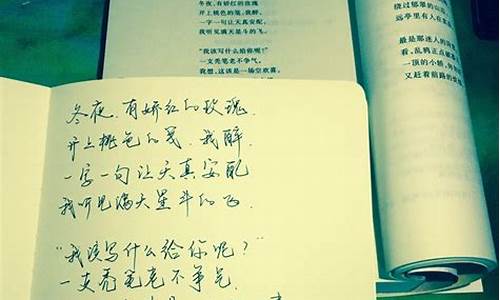 冬夜,有娇红的玫瑰
开上桃色的笺,我醉,
一字一句让天真安配
我听见满天星斗的飞。
"我该写什么给你呢?"
一支秃笔老不争气,
我想,这该是一场空欢喜,
绕过郁翠的山
远亭里有人在
最是那迷人的
看,乱鸦正点破
一顶的小轿,
又赶着前路的
冬夜,有娇红的玫瑰,
开上桃色的笺,我醉,
一字一句让天真安配
我听见满天星斗的飞,
"我该写什么给你呢?"
一支秃笔老不争气,